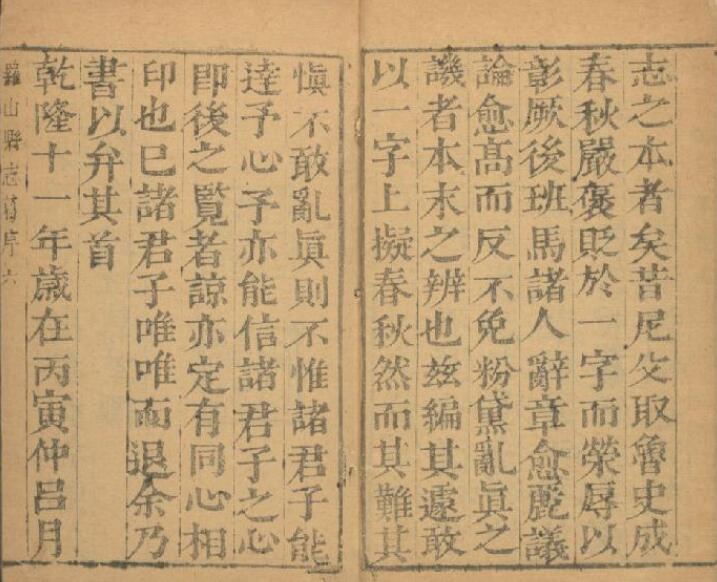 志之本者矣昔尼父取魯史成
春秋嚴褒貶於一字而榮辱以
彰厥後班馬諸人辭章愈麗議
論愈高而反不免粉黛亂眞之
譏者本末之辨也玆編其遽敢
以一字上擬春秋然而其難其
慎不敢亂眞則不惟諸君子能
逹予心予亦能信諸君子之心
即後之覧者諒亦定有同心相
印也已諸君子唯唯而退余乃
書以弁其首
乾隆十一年歲在丙寅仲呂月
羅山縣志舊序六